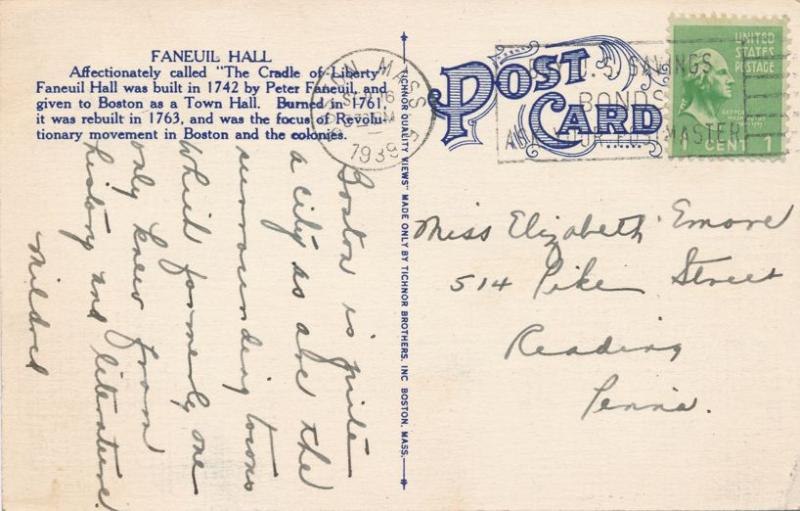 FANEUIL HALL
Affectionately called "The Cradle of Liberty"
Faneuil Hall was built in 1742 by Peter Faneuil, and
given to Boston as a Town Hall. Burned in 1761,
it was rebuilt in 1763, and was the focus of Revolu-
tionary movement in Boston and the colonies.
Boston is quite
a city as are the
surrounding towns
which formerly, one
only knew from
history and literature.
Mildred
"TICHNOR QUALITY VIEWS" MADE ONLY BY TICHNOR BROTHERS, INC BOSTON, MASS.
POST
CARD
MASS
1939
U.S. SAVINGS
BONDS
ASK YOUR POSTMASTER
UNITED
STATES
POSTAGE
1 CENT 1
Miss Elizabeth Emore
514 Pike Street
Reading
Penna.